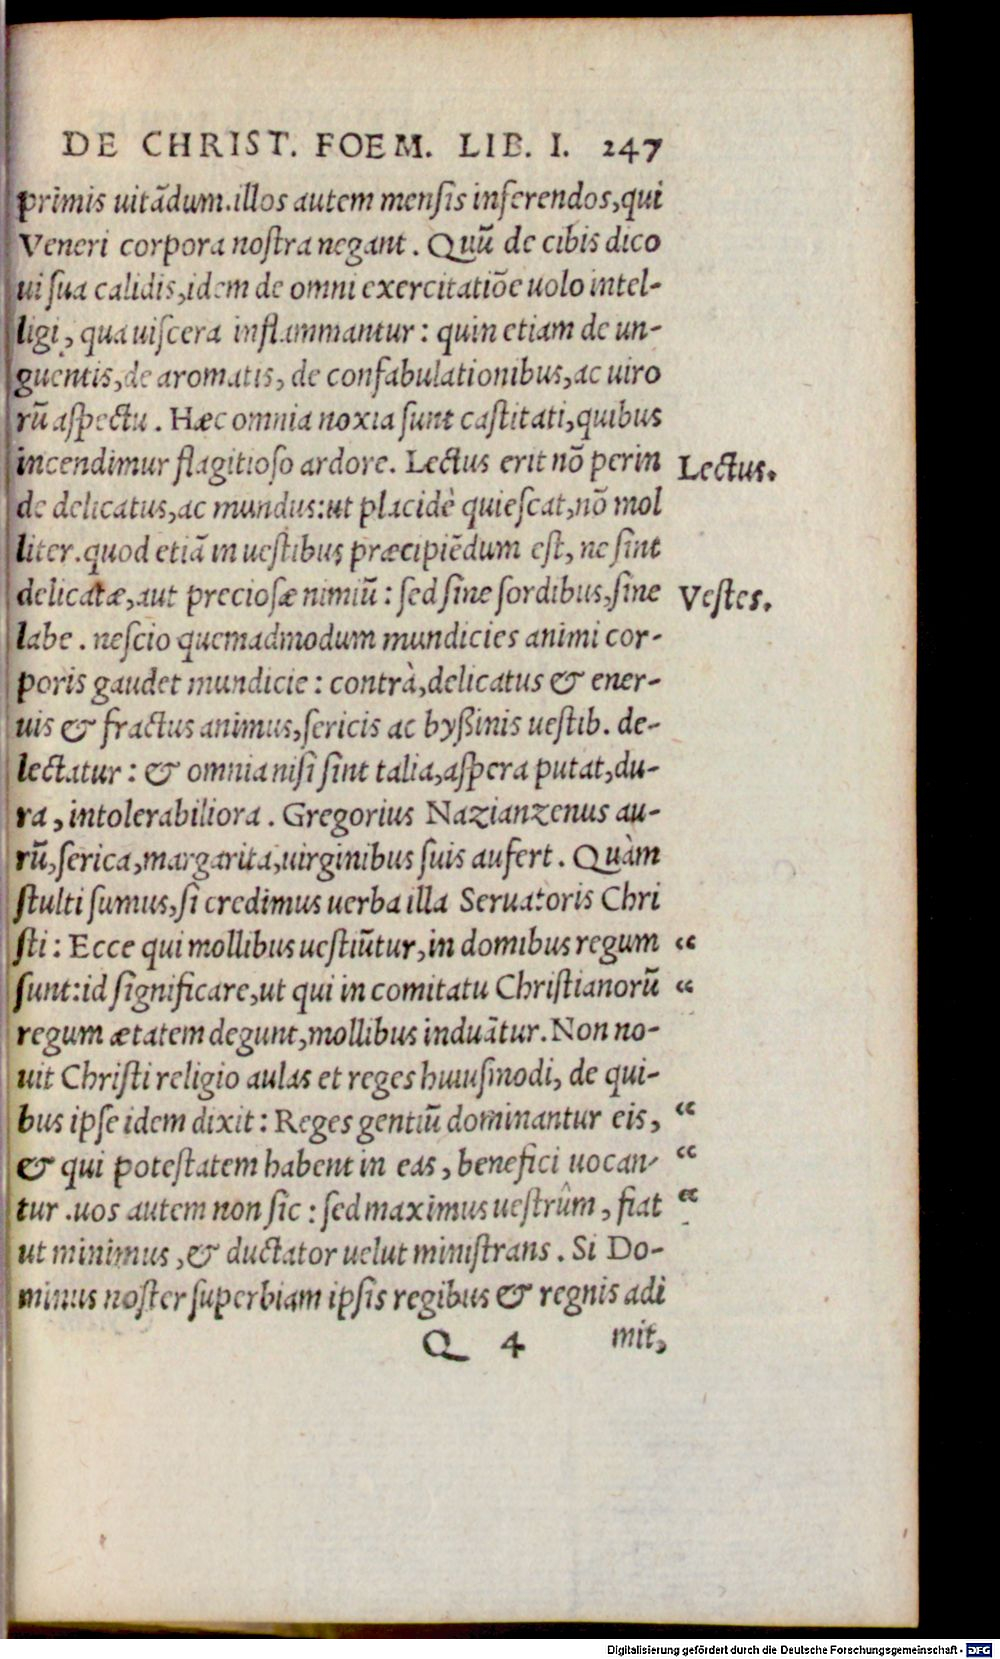 DE CHRIST. FOEM. LIB. I. 247
primis uitādum.illos autem mensis inserendos,qui
Veneri corpora nostra negant. Quū de cibis dico
ui sua calidis,idem de omni exercitatiōe uolo intel-
ligi, qua uiscera inflammantur: quin etiam de un-
guentis,de aromatis, de confabulationibus,ac uiro
rū aspectu. Hæc omnia noxia sunt castitati,quibus
incendimur flagitioso ardore. Lectus erit nō perin
Lectus.
de delicatus,ac mundus:ut placidè quiescat,nō mol
liter.quod etiā in uestibus præcipiēdum est, ne sint
delicatæ,aut preciosæ nimiū: sed sine sordibus,sine
Vestes.
labe. nescio quemadmodum mundicies animi cor-
poris gaudet mundicie: contrà,delicatus & ener-
uis & fractus animus,sericis ac byßinis uestib. de-
lectatur: & omnia nisi sint talia,aspera putat,du-
ra, intolerabiliora. Gregorius Nazianzenus au-
rū,serica,margarita,uirginibus suis aufert. Quàm
stulti sumus,si credimus uerba illa Seruatoris Chri
sti: Ecce qui mollibus uestiūtur,in domibus regum “
sunt:id significare,ut qui in comitatu Christianorū “
regum ætatem degunt,mollibus induātur.Non no-
uit Christi religio aulas et reges huiusmodi, de qui-
bus ipse idem dixit: Reges gentiū dominantur eis, “
& qui potestatem habent in eas, benefici uocan- “
tur.uos autem non sic: sed maximus uestrûm, fiat “
ut minimus,& ductator uelut ministrans. Si Do-
minus noster superbiam ipsis regibus & regnis adi
Q 4 mit,
Digitalisierung gefördert durch die Deutsche Forschungsgemeinschaft - DFG